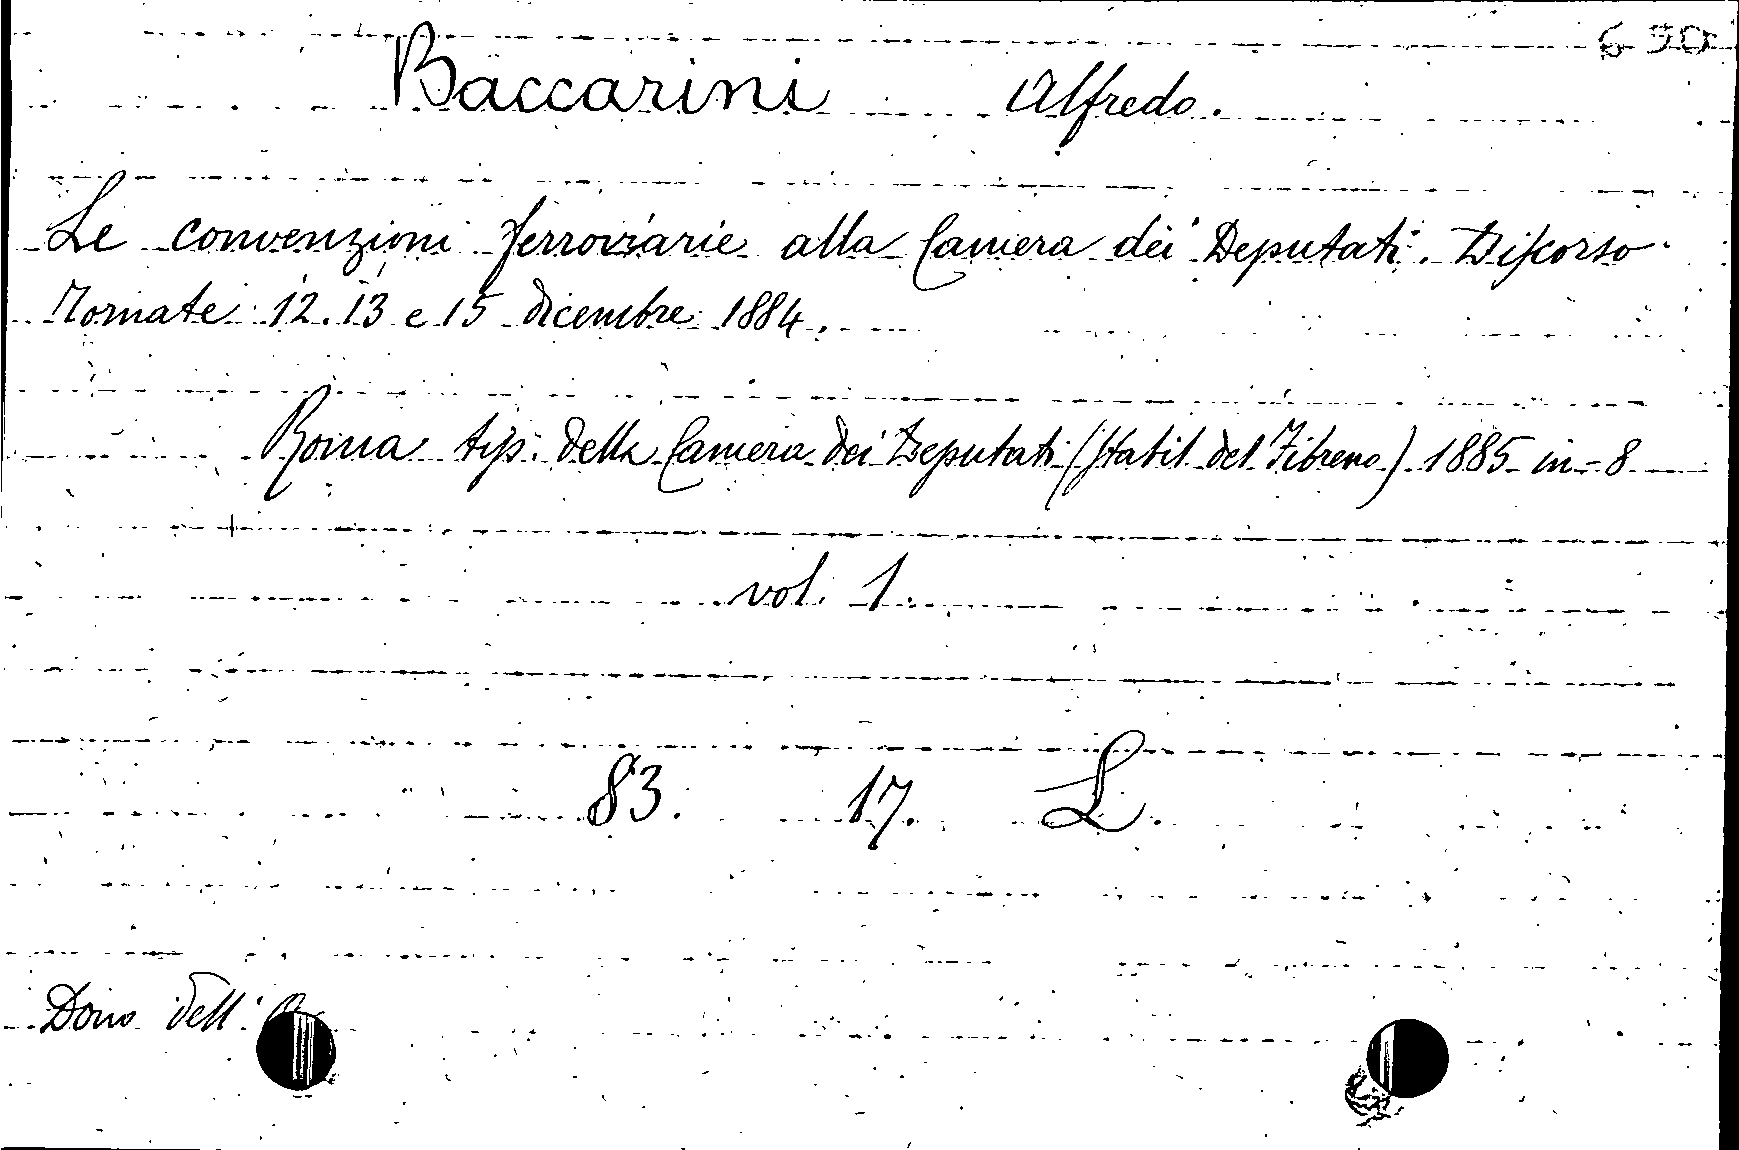 690
Baccarini Alfredo.
Le convenzioni ferroviarie alla Camera dei Deputati. Discorso
Tornate 12. 13 e 15 dicembre 1884.
Roma tip. della Camera dei Deputati (Stabil. del Fibreno) 1885 in-8
vol. 1.
83. 17. L.
Dono dell'